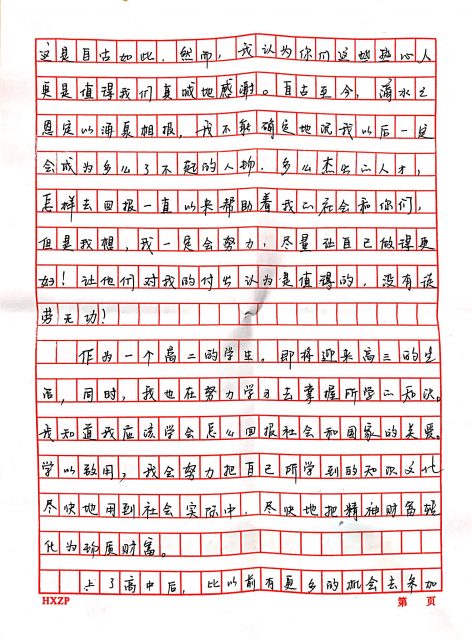 这是自古如此，然而，我认为你们这些热心人
更是值得我们真诚地感谢。自古至今，滴水之
恩定以涌泉相报，我不能确定地说我以后一定
会成为多么了不起的人物，多么杰出的人才，
怎样去回报一直以来帮助着我的社会和你们，
但是我想，我一定会努力，尽量让自己做得更
好！让他们对我的付出认为是值得的，没有徒
劳无功！
作为一个高二的学生。即将迎来高三的生
活，同时，我也在努力学习去掌握所学的知识。
我知道我应该学会怎么回报社会和国家的关爱。
学以致用，我会努力把自己所学到的知识文化
尽快地用到社会实际中，尽快地把精神财富转
化为物质财富。
上了高中后，比以前有更多的机会去参加
HXZP 第 页